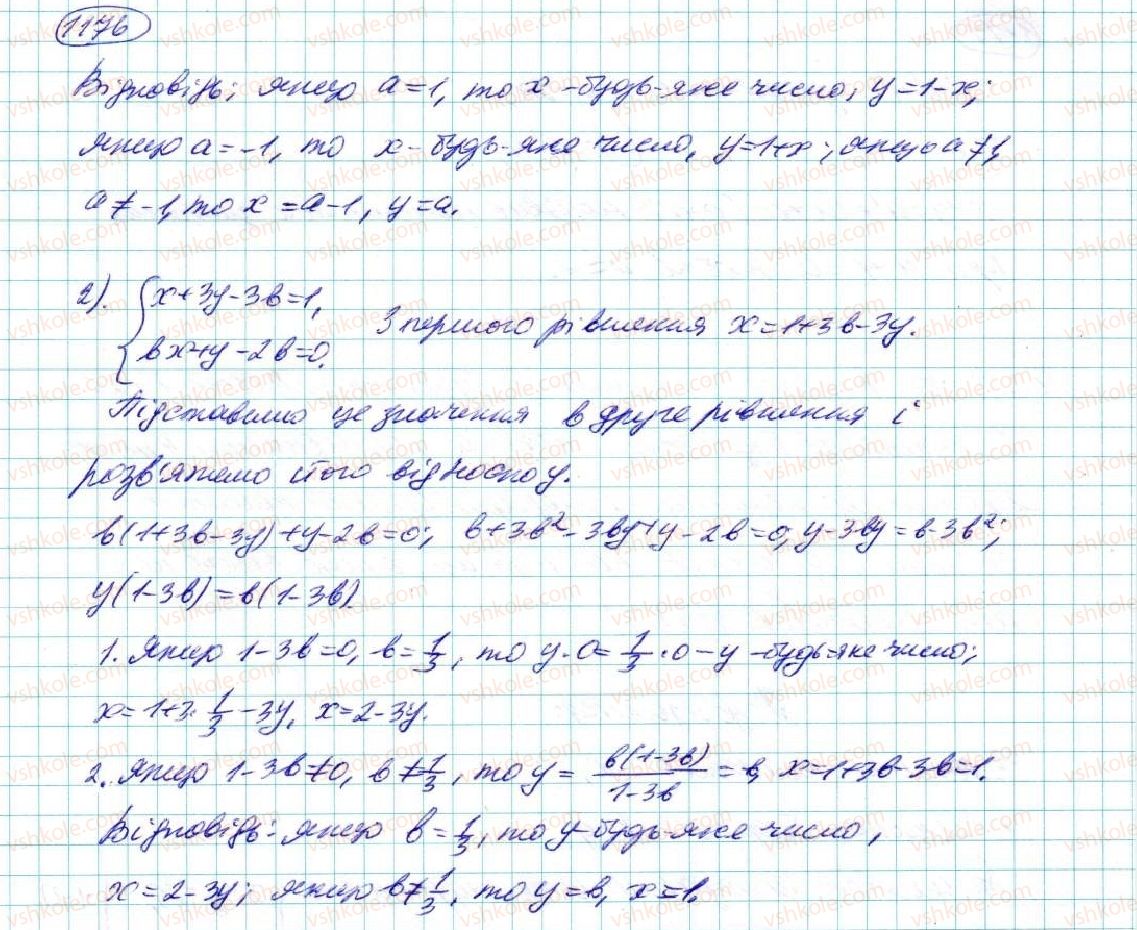 1176
Відповідь: якщо a=1, то x - будь-яке число, y=1-x;
якщо a=-1, то x - будь-яке число, y=1+x; якщо a≠1,
a≠-1, то x=a-1, y=a.
2). { x+3y-3в=1,
вx+y-2в=0. З першого рівняння x=1+3в-3y.
Підставимо це значення в друге рівняння і
розв'яжемо його відносно y.
в(1+3в-3y)+y-2в=0; в+3в²-3вy+y-2в=0, y-3вy=в-3в²;
y(1-3в)=в(1-3в).
1. Якщо 1-3в=0, в=1/3, то y·0=1/3·0 - y - будь-яке число;
x=1+3·1/3-3y, x=2-3y.
2. Якщо 1-3в≠0, в≠1/3, то y=в(1-3в)/1-3в=в, x=1+3в-3в=1.
Відповідь: якщо в=1/3, то y - будь-яке число,
x=2-3y; якщо в≠1/3, то y=в, x=1.